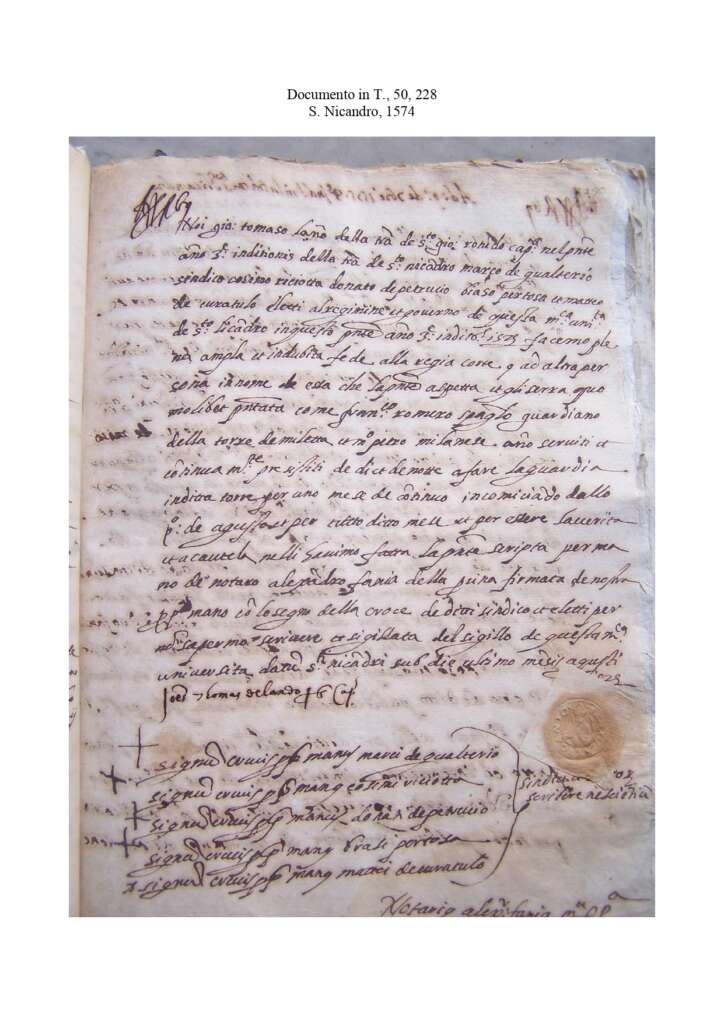 Documento in T., 50, 228
S. Nicandro, 1574
Noi gio: tomaso della trã de sto gio: rotũdo capo nel pnte
año 3e inditionis della trã de sto nicãdro marco de qualterio
sindico cosimo riciotta donato de petrucio biaso pertosa et matteo
de curatulo eletti al regimine et governo di questa mca unita
de sto licãdro in questo pnte año 3e indit. facemo ple
na ampla et indubita fede alla regia corte o ad altra per
sona in nome de essa che la pnte aspetta et gli serra quo
molibet pñtata come romero spaglo guardiano
della torre de miletta et petro milanese año serviti et
cõtinua mte presistiti de die et de notte a fare la guardia
in ditta torre per uno mese de cõtinuo incomiciãdo dallo
po: de agusto et per tutto ditto mese et per essere la verita
et a cautela nelli havimo fatta la pnte scripta per ma
no de notaro alexãdro fania della firmata de nostra
ppa mano cõ lo segno della croce de ditti sindico et eletti per
nõ sapermo scrivere et sigillata del sigillo de questa mca
universita datũ sti nicãdri sub die ultimo mẽsis agusti
Joẽs thomas
signũ crucis pp manus marci de qualterio
signũ crucis pp manus cosimi riciotta
signũ crucis pp manus donati de petrucio
signũ crucis pp manus blasi portosa
signũ crucis pp manus mattei de curatulo
scribere
Notario alexr fania